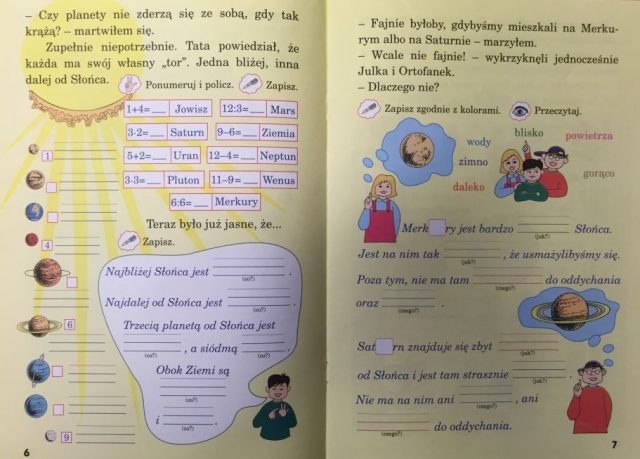 – Czy planety nie zderzą się ze sobą, gdy tak
krążą? – martwiłem się.
Zupełnie niepotrzebnie. Tata powiedział, że
każda ma swój własny „tor”. Jedna bliżej, inna
dalej od Słońca.
Ponumeruj i policz.
Zapisz.
1+4=___ Jowisz
12:3=___ Mars
3·2=___ Saturn
9–6=___ Ziemia
5+2=___ Uran
12–4=___ Neptun
3·3=___ Pluton
11–9=___ Wenus
6:6=___ Merkury
1
4
6
9
Teraz było już jasne, że...
Zapisz.
Najbliżej Słońca jest ___.
(co?)
Najdalej od Słońca jest ___.
(co?)
Trzecią planetą od Słońca jest
___, a siódmą ___.
(co?) (co?)
Obok Ziemi są
___
(co?)
i ___.
(co?)
6
– Fajnie byłoby, gdybyśmy mieszkali na Merku-
rym albo na Saturnie – marzyłem.
– Wcale nie fajnie! – wykrzyknęli jednocześnie
Julka i Ortofanek.
– Dlaczego nie?
Zapisz zgodnie z kolorami.
Przeczytaj.
wody
blisko
powietrza
zimno
gorąco
daleko
Merk ry jest bardzo ___ Słońca.
(jak?)
Jest na nim tak ___, że usmażylibyśmy się.
(jak?)
Poza tym, nie ma tam ___ do oddychania
(czego?)
oraz ___.
(czego?)
Sat rn znajduje się zbyt ___
(jak?)
od Słońca i jest tam strasznie ___.
(jak?)
Nie ma na nim ani ___, ani
(czego?)
___ do oddychania.
(czego?)
7